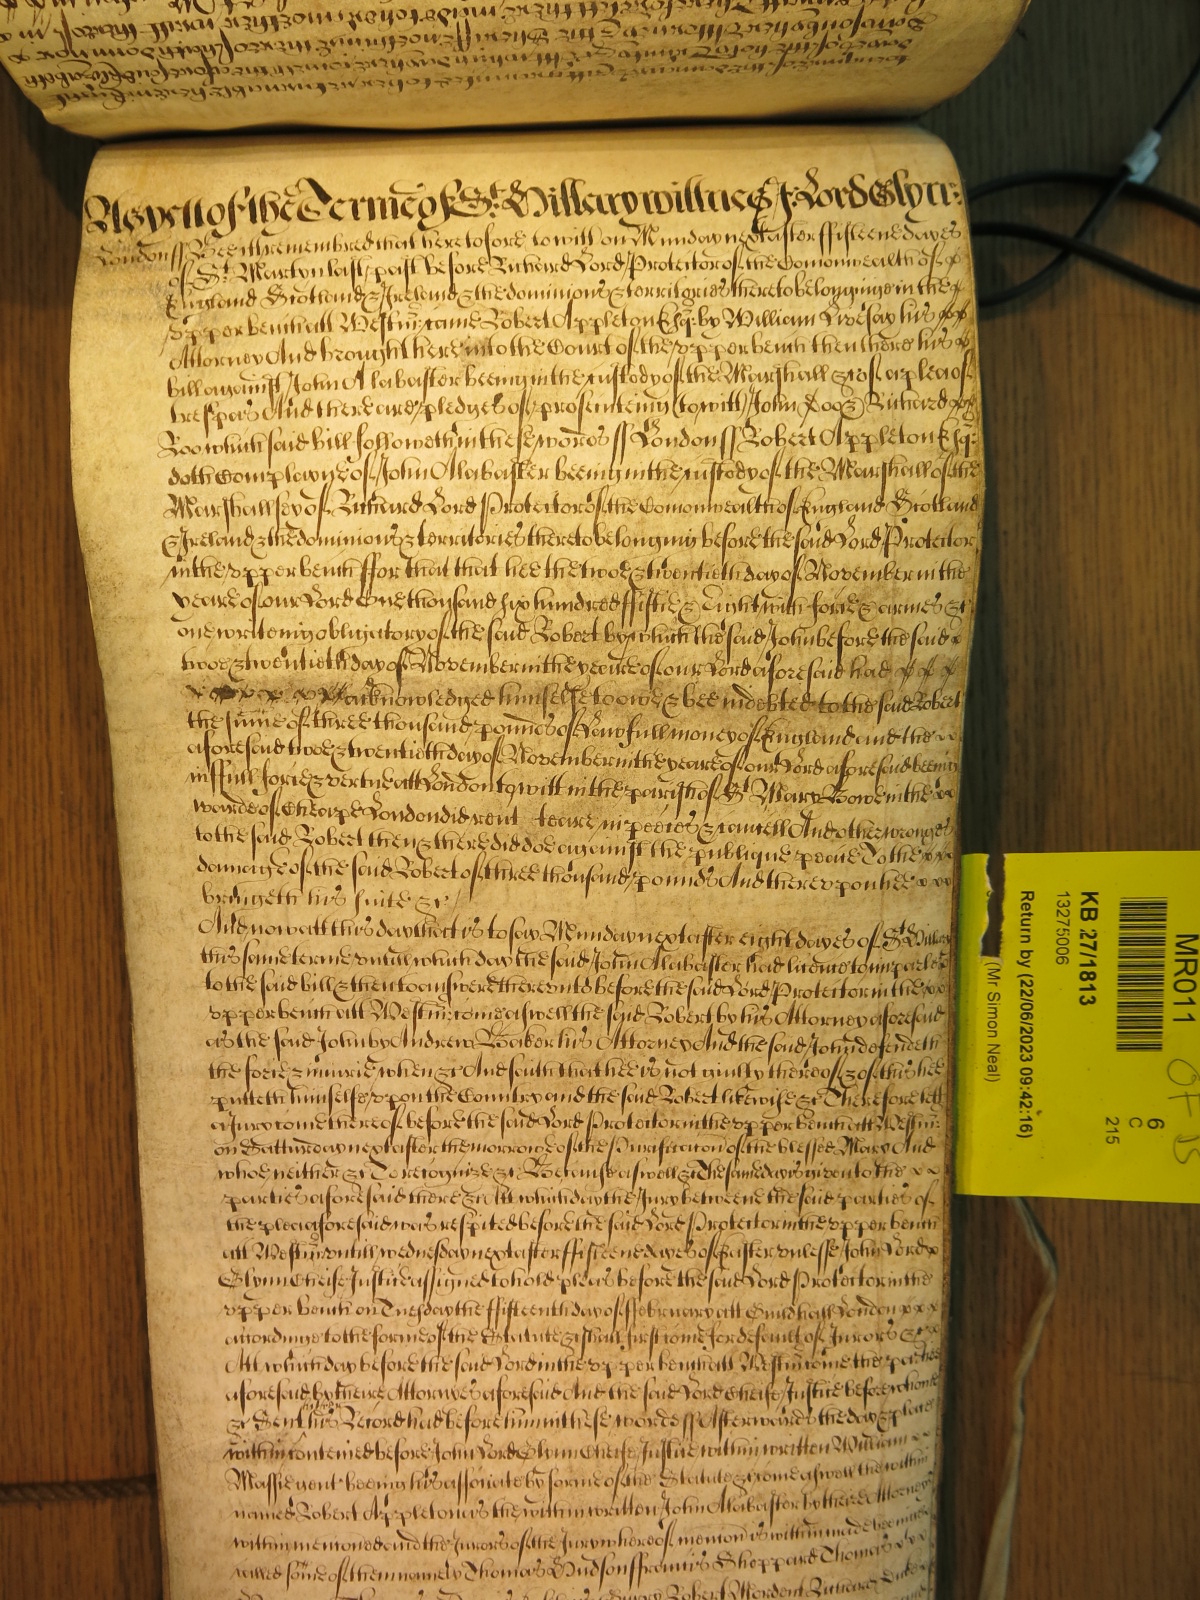 As yett of the Terme of St: Hillary wittnes J: Lord Glynn:
London ss Bee it remembred that heretofore to witt on Munday next after ffifteene dayes
of St. Martyn last past before Richard Lord Protector of the Comonwealth of
England Scotland & Ireland & the dominions & territories thereto belonginge in the
vpper bench att Westm̃: came Robert Appleton Esq: by William Livesay his
Attorney And brought here into the Court of the vpper bench then there his
bill against John Alabaster beeing in the custody of the Marshall &c of a plea of
trespas And there are pledges of prosecuteing (to witt) John Doo & Richard
Roo which said bill followeth in these words ss London ss Robert Appleton Esq:
doth Complayne of John Alabaster beeing in the custody of the Marshall of the
Marshallsey of Richard Lord Protector of the Comonwealth of England Scotland
& Ireland & the dominions & territories thereto belonging before the said Lord Protector
in the vpper bench ffor that that hee the two & twentieth day of November in the
yeare of our Lord One thousand six hundred ffiftie & Eight with force & armes &c
one writeing obligatory of the said Robert by which the said John before the said
two & twentieth day of November in the yeare of our Lord aforesaid had
acknowledged himselfe to owe & bee indebted to the said Robert
the sume of three thousand pounds of Lawfull money of England and the
aforesaid two & twentieth day of November in the yeare of our Lord aforesaid beeing
in full force & vertue att London to witt in the parish of St Mary Bowe in the
warde of Cheape London did rent teare in peeces & cancell And other wronges
to the said Robert then & there did doe against the publique peace To the
damage of the said Robert of three thousand pounds And therevpon hee
bringeth his suite &c
And now att this day that is to say Munday next after eight dayes of St Hillary
this same terme vntill which day the said John Alabaster had licence to imparle
to the said bill & then to answere therevnto before the said Lord Protector in the
vpper bench att Westm̃: come aswell the said Robert by his Attorney aforesaid
as the said John by Andrew Baker his Attorney And the said John defendeth
the force & iniurie when &c And saith that hee is not guilty thereof & of this hee
putteth himselfe vpon the Country and the said Robert likewise &c Therefore lett
a Jury come thereof before the said Lord Protector in the vpper bench att Westm̃:
on Satturday next after the morrowe of the Purification of the blessed Mary And
whoe neither &c To recognize &c Because aswell &c The same day is given to the
parties aforesaid there &c Att which day the Jury betweene the said parties of
the plea aforesaid was respited before the said Lord Protector in the vpper bench
att Westm̃: vntill wednesday next after ffifteene dayes of Easter vnlesse John Lord
Glynn Cheife Justice assigned to hold pleas before the said Lord Protector in the
vpper bench on Tuesday the ffifteenth day of ffebruary att Guildhall London
accordinge to the forme of the Statute &c shall first come for default of Jurors &c
Att which day before the said Lord in the vpper bench att Westm̃ come the parties
aforesaid by theire Attornyes aforesaid And the said Lord Cheife Justice before whome
&c Sent his Record had before him in these words ss Afterwards the day & place
within conteined before John Lord Glynn Cheife Justice within written William
Massie gent beeing his associate by forme of the Statute &c come aswell the within
named Robert Appleton as the within written John Alabaster by theire Attornyes
within mencioned and the Jurors of the Jury whereof mencion is within made beeing
called some of them namely Thomas Hudson ffrancis Sheppard Thomas
Robert Mordent Richard
MR011
6
C
215
KB 27/1813
13275006
Return by (22/06/2023 09:42:16)
(Mr Simon Neal)